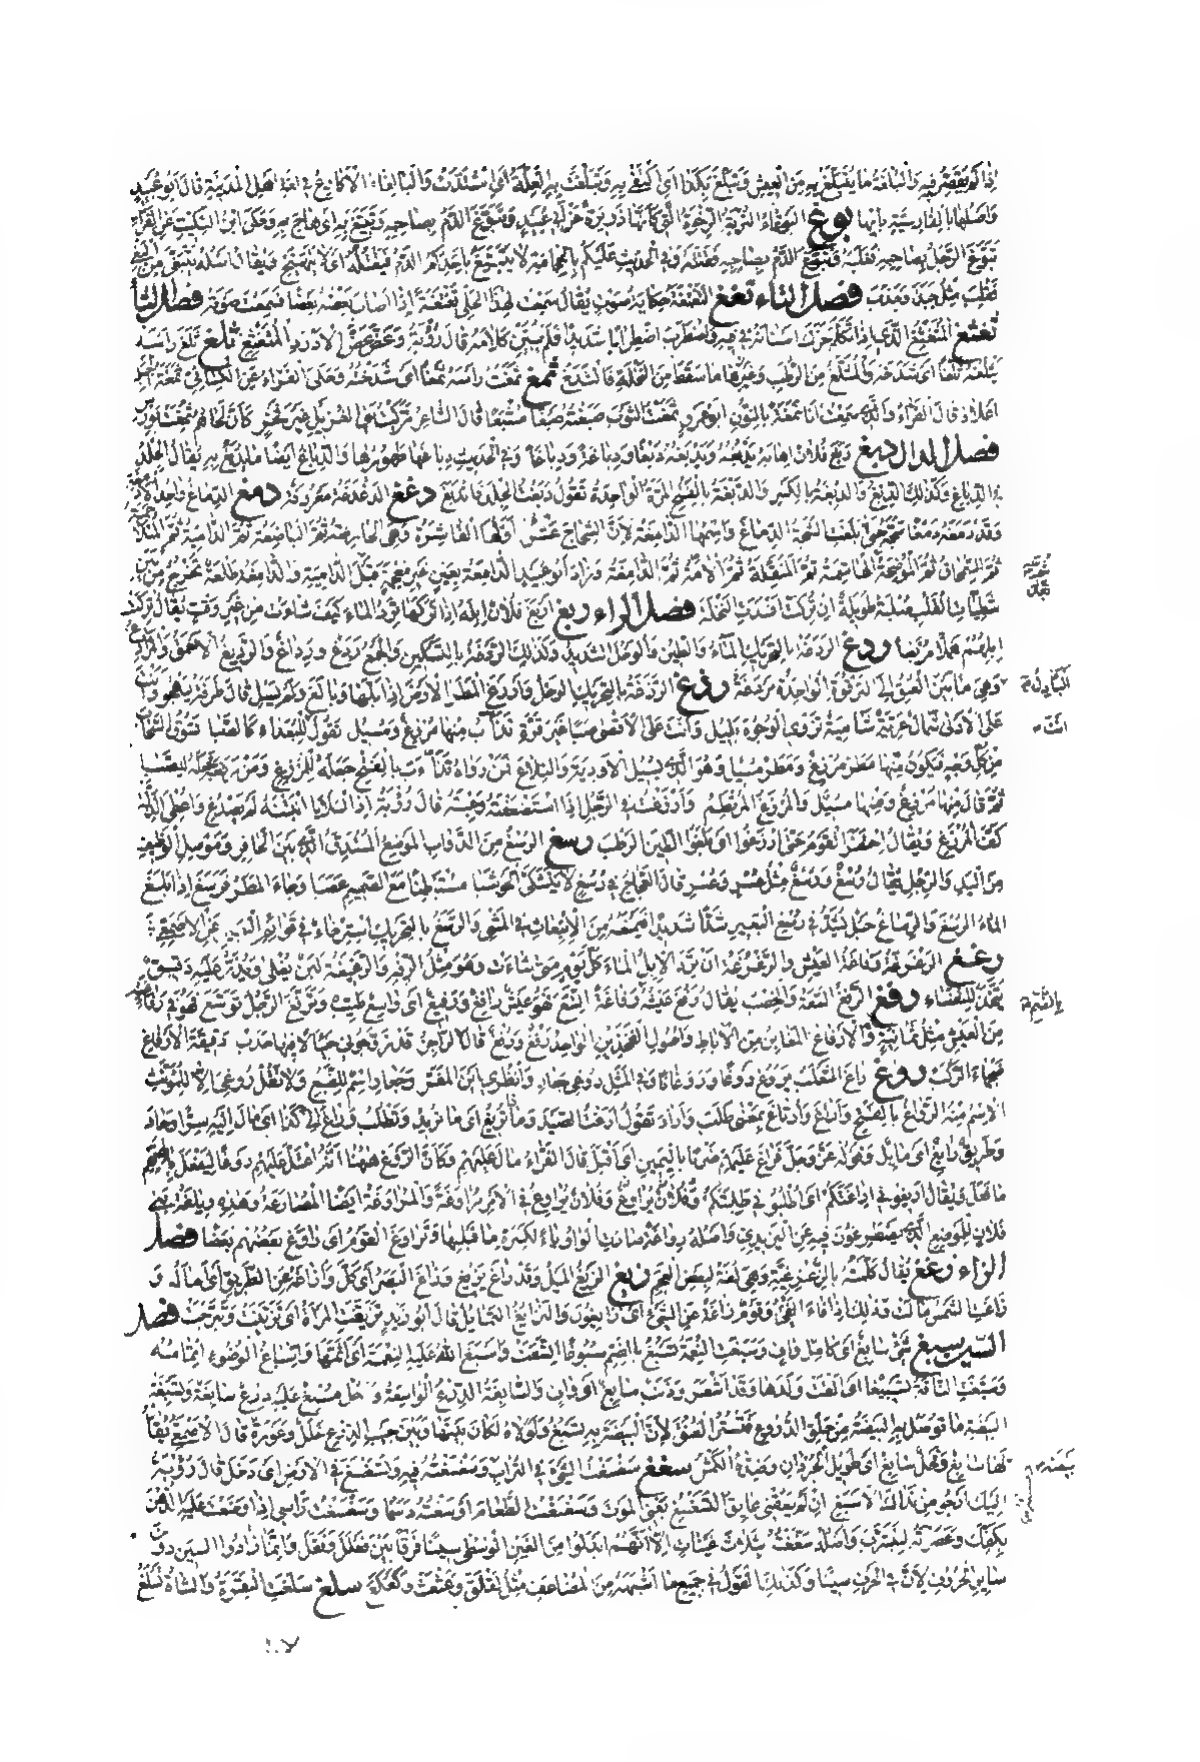 إذا لم يقصر فيه والبلغة ما يتبلغ به من العيش وتبلغ بكذا أي اكتفى به وتبلغت به العلة أي اشتدت والبالغاء الأكارع في لغة أهل المدينة قال أبو عبيد
وأصلها بالفارسية پايها بوغ البوغاء التربة الرخوة التي كأنها ذريرة عن أبي عبيد وتبوغ الدم بصاحبه وتبيغ به أي هاج به وحكى ابن السكيت عن الفراء
تبوغ الرجل بصاحبه فغلبه وتبوغ الدم بصاحبه فقتله وفي الحديث عليكم بالحجامة لا يتبوغ بأحدكم الدم فيقتله أي لا يتهيج ويقال أصله يتبغى من البغي
فقلب مثل جبذ وجذب فصل التاء تغغ التغتغة حكاية صوت يقال سمعت لهذا الحلي تغتغة إذا أصاب بعضه بعضا فسمعت صوته فصل الثاء
ثغثغ المثغثغ الذي إذا تكلم حرك أسنانه في فيه واضطرب اضطرابا شديدا فلم يبين كلامه قال رؤبة وعض عض الأدرد المثغثغ ثلغ ثلغ رأسه
يثلغه ثلغا أي شدخه والمثلغ من الرطب وغيره ما سقط من النخلة فانشدخ ثمغ ثمغت رأسه ثمغا أي شدخته وحكى الفراء عن الكسائي ثمغة الجبل
أعلاه قال الفراء والذي سمعت أنا نمغة بالنون أبو عمرو ثمغت الثوب صبغته صبغا مشبعا قال الشاعر تركت بني الغزيل غير فخر كأن لحاهم ثمغت بورس
فصل الدال دبغ دبغ فلان إهابه يدبغه ويدبغه دبغا ودباغة ودباغا وفي الحديث دباغها طهورها والدباغ أيضا ما يدبغ به يقال الجلد
في الدباغ وكذلك الدبغ والدبغة بالكسر والدبغة بالفتح المرة الواحدة تقول دبغت الجلد فاندبغ دغغ الدغدغة معروفة دمغ الدماغ واحد الأدمغة
وقد دمغه دمغا شجه حتى بلغت الشجة الدماغ واسمها الدامغة لأن الشجاج عشر أولها القاشرة وهي الحارصة ثم الباضعة ثم الدامية ثم المتلاحمة
ثم السمحاق ثم الموضحة ثم الهاشمة ثم المنقلة ثم الآمة ثم الدامغة وزاد أبو عبيد الدامعة بعين غير معجمة قبل الدامية والدامغة طلعة تخرج من بين
شظيات القلب صلبة طويلة إن تركت أفسدت النخلة فصل الراء ربغ أربغ فلان إبله إذا تركها ترد الماء كيف شاءت من غير وقت يقال تركت
إبلهم هملا مربغا ردغ الردغة بالتحريك الماء والطين والوحل الشديد وكذلك الردغة بالتسكين والجمع ردغ ورداغ والرديغ الأحمق والمرادغ
وهي ما بين العنق إلى الترقوة الواحدة مردغة رزغ الرزغة بالتحريك الوحل وأرزغ المطر الأرض إذا بلها وبالغ ولم يسل قال طرفة يهجو
على الأدنى شمال عرية شآمية تزوي الوجوه بليل وأنت على الأقصى صبا غير قرة تذاءب منها مرزغ ومسيل تقول للبعداء كالصبا تسوق السحاب
من كل وجه فيكون منها مطر مرزغ ومطر مسيل وهو الذي يسيل الأودية والتلاع فمن رواه تذاءب بالفتح جعله للمرزغ ومن رفع جعله للصبا
ثم قال منها مرزغ ومنها مسيل والمرزغ المرطم وأرزغت في الرجل إذا استضعفته وعبته قال رؤبة إذا البلايا انتبنه لم يصدغ وأعطى الذلة
كف المرزغ ويقال احتفر القوم حتى أرزغوا أي بلغوا الطين الرطب رسغ الرسغ من الدواب الموضع المستدق الذي بين الحافر وموصل الوظيف
من اليد والرجل يقال رسغ ورسغ مثل عسر وعسر قال العجاج في رسغ لا يتشكى الحوشبا مستبطنا مع الصميم عصبا وجاء المطر فرسغ إذا بلغ
الماء الرسغ والرساغ حبل يشد في رسغ البعير شدا شديدا فيمنعه من الانبعاث في المشي والرسغ بالتحريك استرخاء في قوائم البعير عن الأصمعي
رغغ الرغرغة رفاغة العيش والرغرغة أن ترد الإبل الماء كل يوم متى شاءت وهو مثل الرفه والرغيغة لبن يغلى ويذر عليه دقيق
يتخذ للنفساء رفغ الرفغ السعة والخصب يقال رفغ عيشه رفاغة اتسع فهو عيش رافغ ورفيغ أي واسع طيب وترفغ الرجل توسع فهو في رفاغة
من العيش مثل ثمانية والأرفاغ المغابن من الآباط وأصول الفخذين الواحد رفغ ورفغ قال الراجز قد زوجوني جيألا فيها حدب دقيقة الأرفاغ
ضخماء الركب روغ راغ الثعلب يروغ روغا وروغانا وفي المثل روغي جعار وانظري أين المفر وجعار اسم للضبع ولا تقل روغي إلا للمؤنث
الاسم منه الرواغ بالفتح وأراغ وارتاغ بمعنى طلب وأراد تقول أرغت الصيد وماذا تريغ أي ما تريد وتطلب وراغ إلى كذا أي مال إليه سرا وحاد
وطريق رائغ أي مائل وقوله عز وجل فراغ عليهم ضربا باليمين أي أقبل قال الفراء مال عليهم وكأن الروغ ههنا أنه اعتل عليهم روغا ليفعل بآلهتهم
ما فعل ويقال أريغوني إراغتكم أي اطلبوني طلبتكم وفلان يراوغ وفلان يراوغ في الأمر مراوغة والمراوغة أيضا المصارعة وهذه رياغة بني
فلان للموضع الذي يصطرعون فيه عن اليزيدي وأصله رواغة صارت الواو ياء لكسرة ما قبلها وتراوغ القوم أي راوغ بعضهم بعضا فصل
الزاء زغغ يقال كلمته بالزغزغية وهي لغة لبعض العجم زيغ الزيغ الميل وقد زاغ يزيغ وزاغ البصر أي كل وأزاغه عن الطريق أي أماله و
زاغت الشمس مالت وذلك إذا فاء الفيء وقوم زاغة عن الشيء أي زائغون والتزايغ التمايل قال أبو زيد تزيغت المرأة أي تزينت وتبرجت فصل
السين سبغ شيء سابغ أي كامل واف وسبغت النعمة تسبغ بالضم سبوغا اتسعت وأسبغ الله عليه النعمة أي أتمها وإسباغ الوضوء إتمامه
وسبغت الناقة تسبيغا أي ألقت ولدها وقد أشعر وذنب سابغ أي واف والسابغة الدرع الواسعة ورجل مسبغ عليه درع سابغة وتسبغة
البيضة ما توصل به البيضة من حلق الدروع فتستر العنق لأن البيضة به تسبغ ولولاه لكان بينها وبين جيب الدرع خلل وعورة قال الأصمعي يقال
لها تسابغ وفحل سابغ أي طويل الجردان وضده الكمش سغغ سغسغت الشيء في التراب وسغسغته فيه وتسغسغ في الأرض أي دخل قال رؤبة
إليك أرجو من نداك الأسبغ إن لم يعقني عائق التسغسغ يعني الموت وسغسغت الطعام أوسعته دسما وسغسغت رأسي إذا وضعت عليه الدهن
بكفك وعصرته ليتشرب وأصله سغغته بثلاث غينات إلا أنهم أبدلوا من الغين الوسطى سينا فرقا بين فعلل وفعل وإنما زادوا السين دون
سائر الحروف لأن في الحرف سينا وكذلك القول في جميع ما أشبهه من المضاعف مثل لقلق وعثعث وكعكع سلغ سلغت البقرة والشاة تسلغ